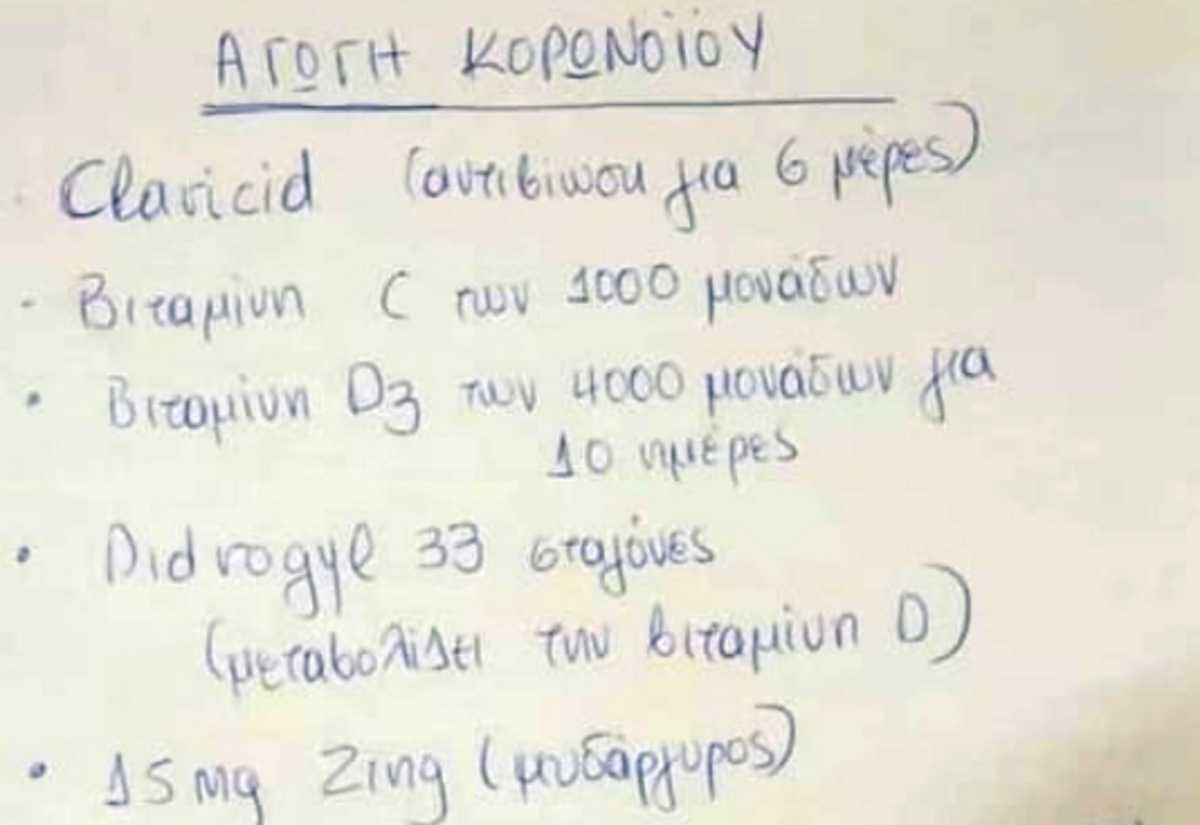 ΑΓΩΓΗ ΚΟΡΩΝΟΪΟΥ
Claricid (αντιβίωση για 6 μέρες)
- Βιταμίνη C των 1000 μονάδων
• Βιταμίνη D3 των 4000 μονάδων για
10 ημέρες
• Didrogyl 33 σταγόνες
(μεταβολίζει την βιταμίνη D)
• 15mg Zing (μυδάργυρος)